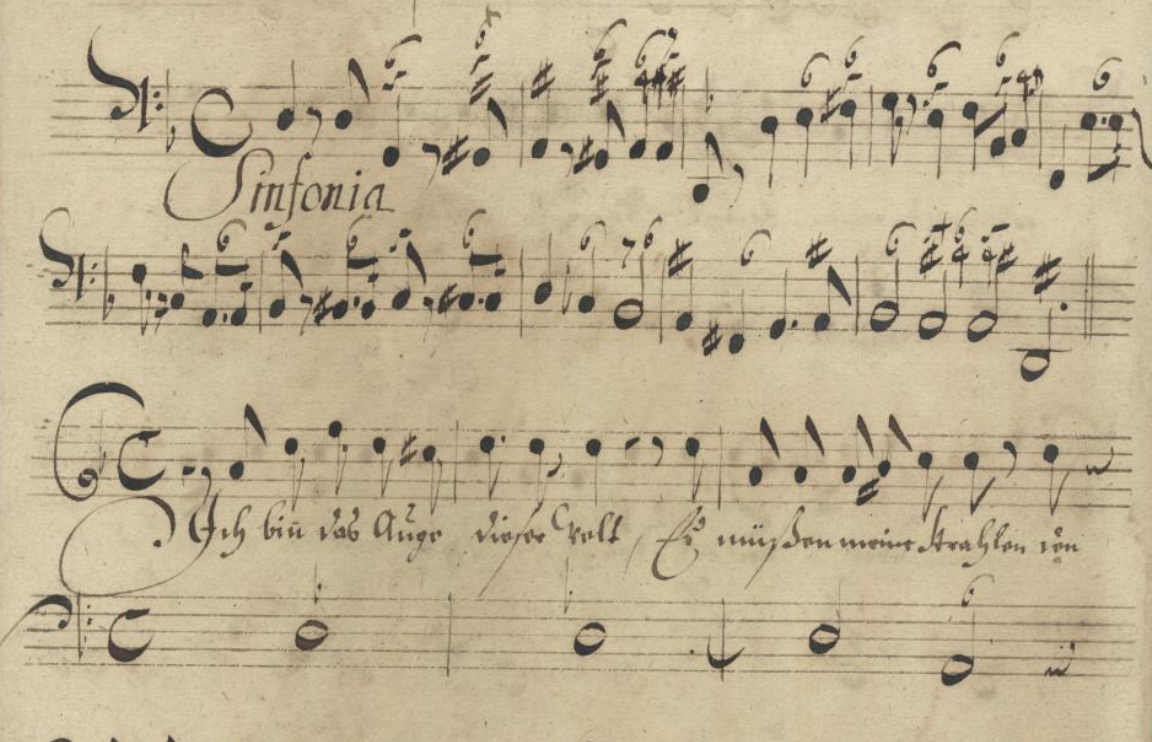 Sinfonia
Ich bin das Auge dieser Welt, Es müßen meine Strahlen den